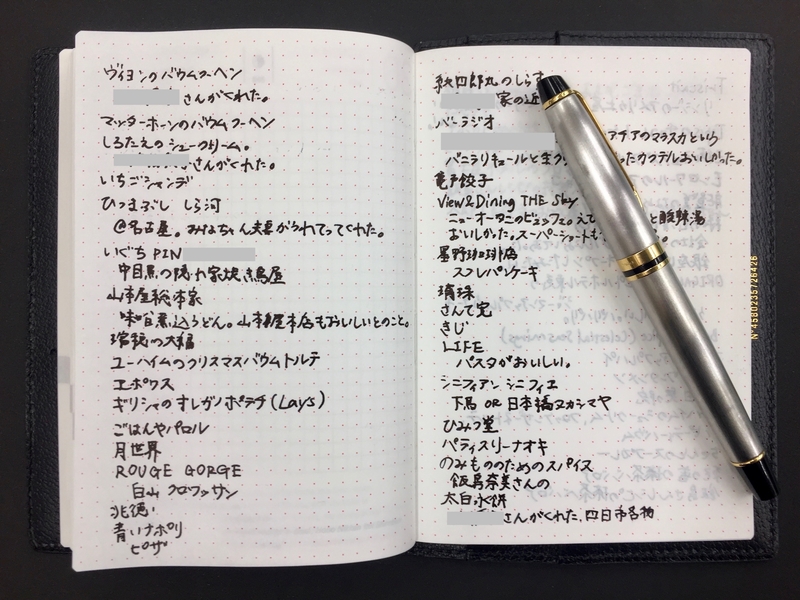 ヴィヨンのバウムクーヘン
さんがくれた。
マッターホーンのバウムクーヘン
しろたえのシュークリーム。
さんがくれた。
いちごシャンデ
ひつまぶし しら河
@名古屋。みなちゃん夫妻がつれてってくれた。
いぐち PIN
中目黒の隠れ家焼き鳥屋
山本屋総本家
味噌煮込うどん。山本屋本店もおいしいとのこと。
瑞穂の大福
ユーハイムのクリスマスバウムトルテ
エポワス
ギリシャのオレガノポテチ(Lays)
ごはんやパロル
月世界
ROUGE GORGE
白山 クロワッサン
兆徳
青いナポリ
ピザ
秋四郎丸のしらす
家の近
バーラジオ
アチアのマラスカという
バニラリキュールと生ク ったカクテルおいしかった。
亀戸餃子
View&Dining THE Sky
ニューオータニのビュッフェ。え と酸辣湯
おいしかった。スーパーショートも
星野珈琲店
スフレパンケーキ
璃珠
さんて寛
きじ
LIFE
パスタがおいしい。
シニフィアン シニフィエ
下馬 OR 日本橋タカシマヤ
ひみつ堂
パティスリーナオキ
のみもののためのスパイス
飯島奈美さんの
太白永餅
さんがくれた、四日市名物
N°4580235726426